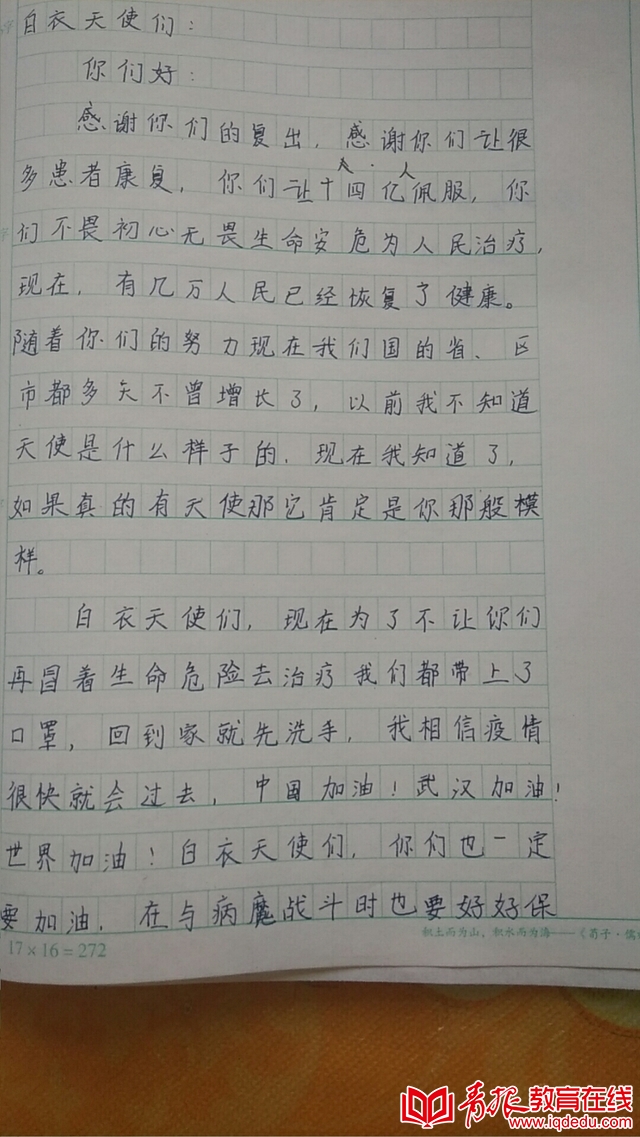 白衣天使们：
你们好：
感谢你们的复出，感谢你们让很
多患者康复，你们让十四亿人佩服，你
们不畏初心无畏生命安危为人民治疗，
现在，有几万人民已经恢复了健康。
随着你们的努力现在我们国的省、区
市都多天不曾增长了，以前我不知道
天使是什么样子的，现在我知道了，
如果真的有天使那它肯定是你那般模
样。
白衣天使们，现在为了不让你们
再冒着生命危险去治疗我们都带上了
口罩，回到家就先洗手，我相信疫情
很快就会过去，中国加油！武汉加油！
世界加油！白衣天使们，你们也一定
要加油，在与病魔战斗时也要好好保
17×16=272
积土而为山、积水而为海——《荀子·儒
青报教育在线
www.iqdedu.com